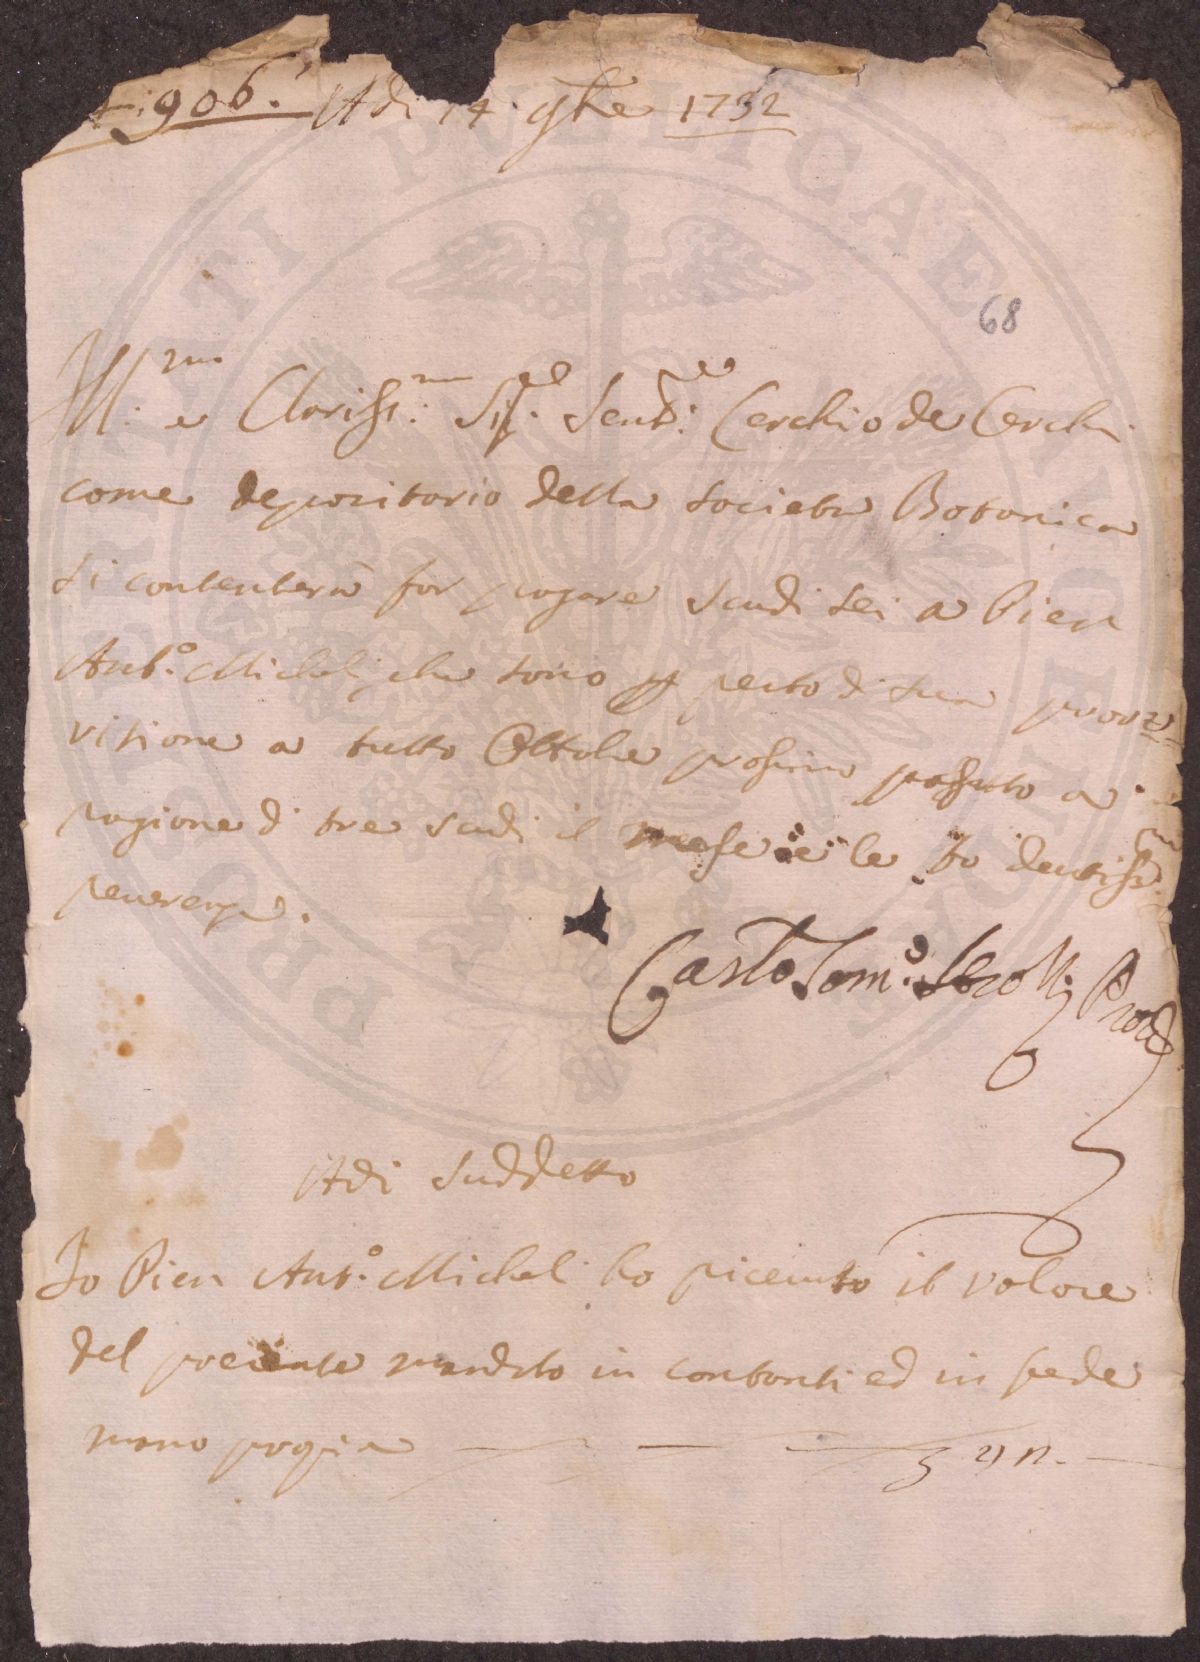 906. A dì 14 9bre 1732
68
Ill.mo e Clariss.mo Sig.re Sent.re Cerchio de Cerchi
come depositario della Societa Botanica
si contenterà far pagare scudi sei a Pier
Ant.o Micheli, che sono p resto di sua prov
visione a tutto Ottobe prossimo passato a
ragione di tre scudi il mese e le fo deutiss.ma
reverenza.
A dì suddetto
Io Pier Ant.o Micheli ho riceuuto il valore
del presente mandato in contanti ed in fede
mano propia
PROSPERITATI PUBLICAE AUGENDAE